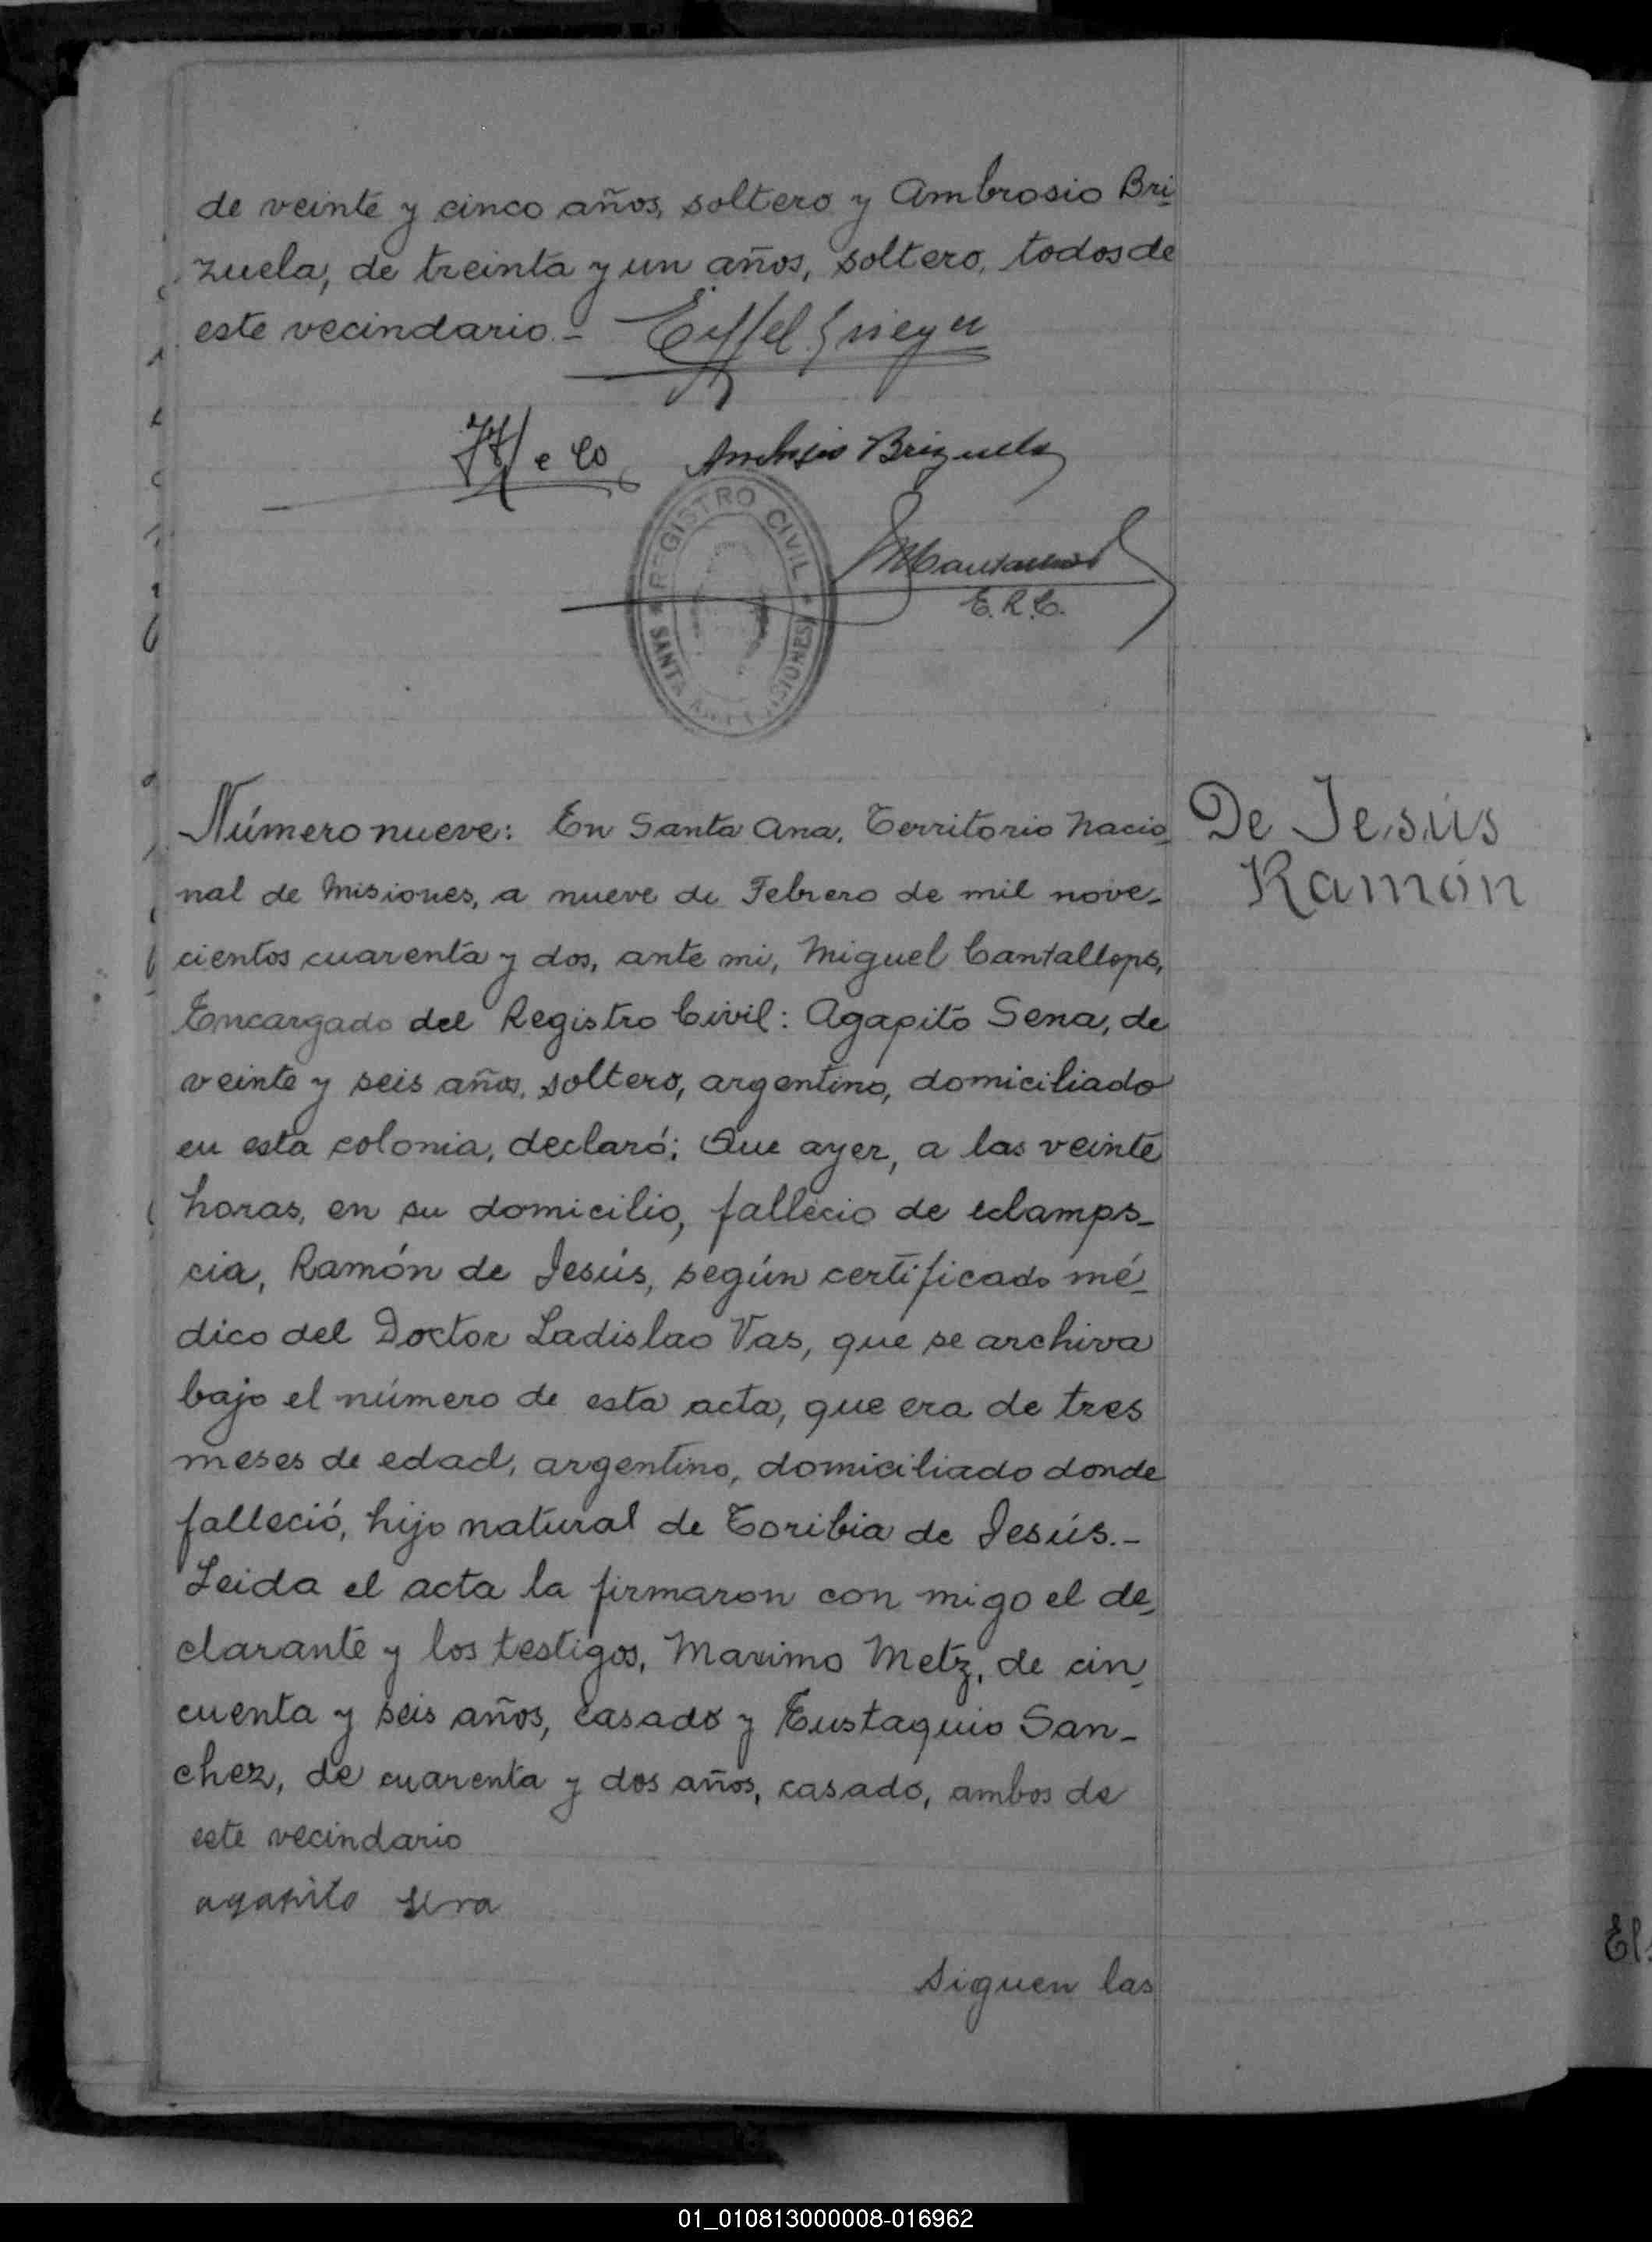 de veinte y cinco años, soltero y Ambrosio Bri-
zuela, de treinta y un años, soltero, todos de
este vecindario.-
Ambrosio Brizuela
REGISTRO CIVIL
SANTA ANA MISIONES
E.R.C.
Número nueve: En Santa Ana, Territorio Nacio-
nal de Misiones, a nueve de Febrero de mil nove-
cientos cuarenta y dos, ante mi, Miguel Cantallops,
Encargado del Registro Civil: Agapito Sena, de
veinte y seis años, soltero, argentino, domiciliado
en esta colonia, declaró; Que ayer, a las veinte
horas, en su domicilio, fallecio de eclamps-
cia, Ramón de Jesús, según certificado mé-
dico del Doctor Ladislao Vas, que se archiva
bajo el número de esta acta, que era de tres
meses de edad, argentino, domiciliado donde
falleció, hijo natural de Toribia de Jesús.-
Leida el acta la firmaron con migo el de-
clarante y los testigos, Maximo Metz, de cin-
cuenta y seis años, casado y Eustaquio San-
chez, de cuarenta y dos años, casado, ambos de
este vecindario
agapito sena
siguen las
De Jesús
Ramón
01_010813000008-016962